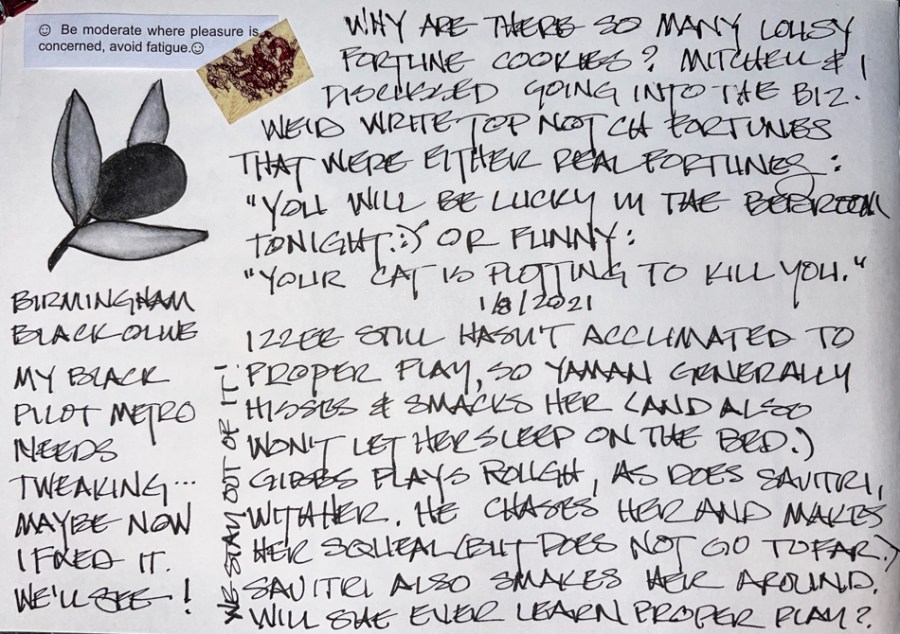 ☺ Be moderate where pleasure is
concerned, avoid fatigue.☺
WHY ARE THERE SO MANY LOUSY
FORTUNE COOKIES? MITCHELL & I
DISCUSSED GOING INTO THE BIZ.
WE'D WRITE TOP NOTCH FORTUNES
THAT WERE EITHER REAL FORTUNES:
"YOU WILL BE LUCKY IN THE BEDROOM
TONIGHT :)" OR FUNNY:
"YOUR CAT IS PLOTTING TO KILL YOU."
1/8/2021
IZZEE STILL HASN'T ACCLIMATED TO
PROPER PLAY, SO YAMAN GENERALLY
HISSES & SMACKS HER (AND ALSO
WON'T LET HER SLEEP ON THE BED.)
GIBBS PLAYS ROUGH, AS DOES SAVITRI,
WITH HER. HE CHASES HER AND MAKES
HER SQUEAL (BUT DOES NOT GO TO FAR.)
SAVITRI ALSO SMAKES HER AROUND.
WILL SHE EVER LEARN PROPER PLAY?
WE STAY OUT OF IT!
BIRMINGHAM
BLACK OLIVE
MY BLACK
PILOT METRO
NEEDS
TWEAKING...
MAYBE NOW
I FIXED IT.
WE'LL SEE!